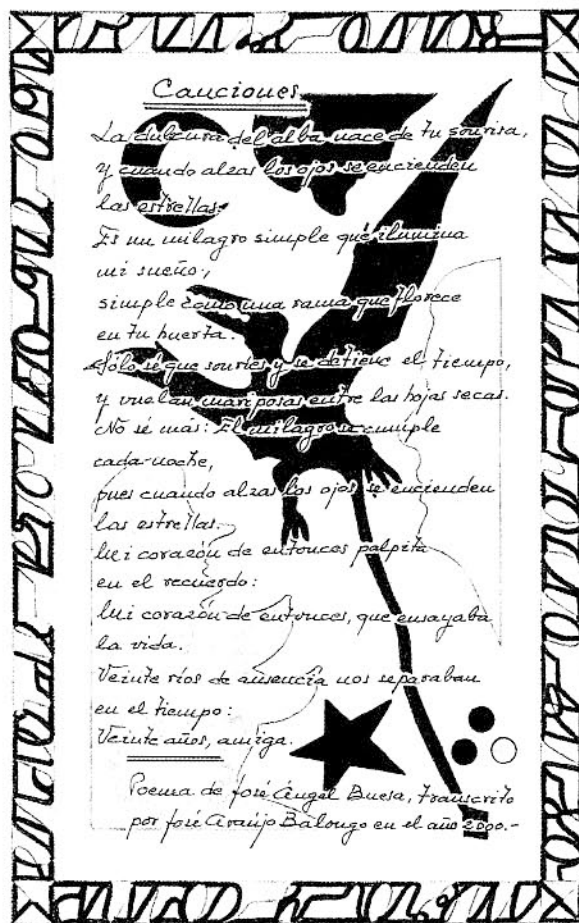 Canciones
La dulzura del alba nace de tu sonrisa,
y cuando alzas los ojos se encienden
las estrellas.
Es un milagro simple que ilumina
mi sueño,
simple como una rama que florece
en tu huerta.
Sólo sé que sonríes y se detiene el tiempo,
y vuelan mariposas entre las hojas secas.
No sé más: El milagro se cumple
cada noche,
pues cuando alzas los ojos se encienden
las estrellas.
Mi corazón de entonces palpita
en el recuerdo:
Mi corazón de entonces, que ensayaba
la vida.
Veinte ríos de ausencia nos separaban
en el tiempo:
Veinte años, amiga.
Poema de José Ángel Buesa, transcrito
por José Araújo Balongo en el año 2000.-